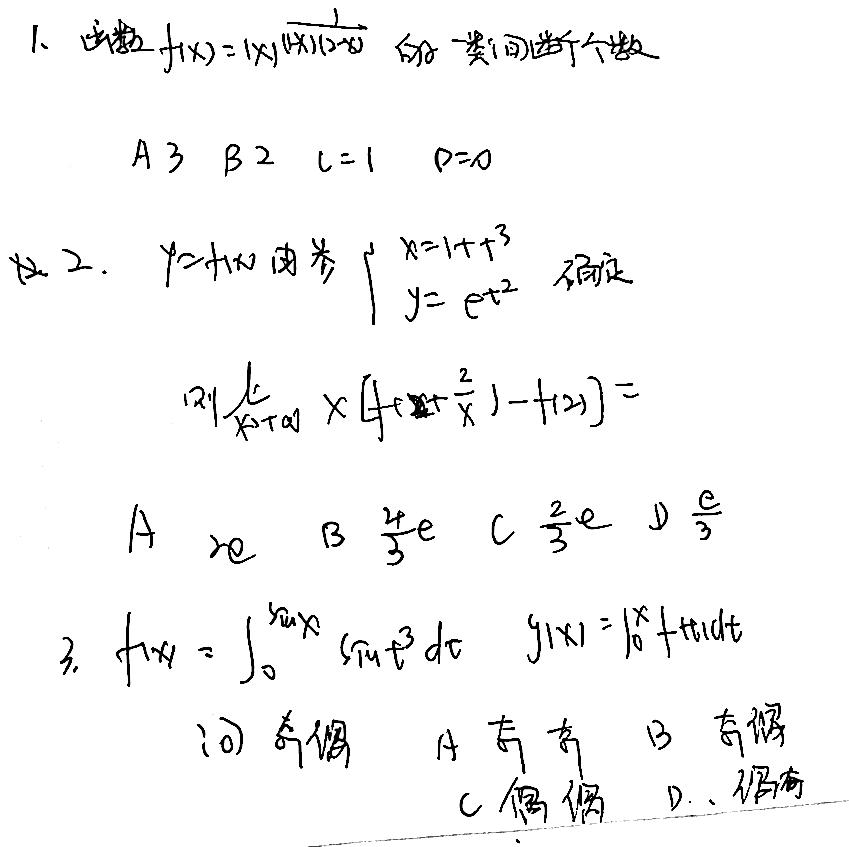 1. 函数 f(x) = |x|^{\frac{1}{(1-x)(x-2)}} 的一类间断个数
A 3 B 2 C=1 D=0
2. y=f(x) 由参 { x=1+t^3
y= e^{t^2} 确定
则 \lim_{x→+∞} x [f(2+\frac{2}{x}) - f(2)] =
A 2e B \frac{4}{3}e C \frac{2}{3}e D \frac{e}{3}
3. f(x) = \int_0^{\sin x} \sin t^3 dt g(x) = \int_0^x f(t)dt
问 奇偶 A 奇 奇 B 奇 偶
C 偶 偶 D. 偶 奇